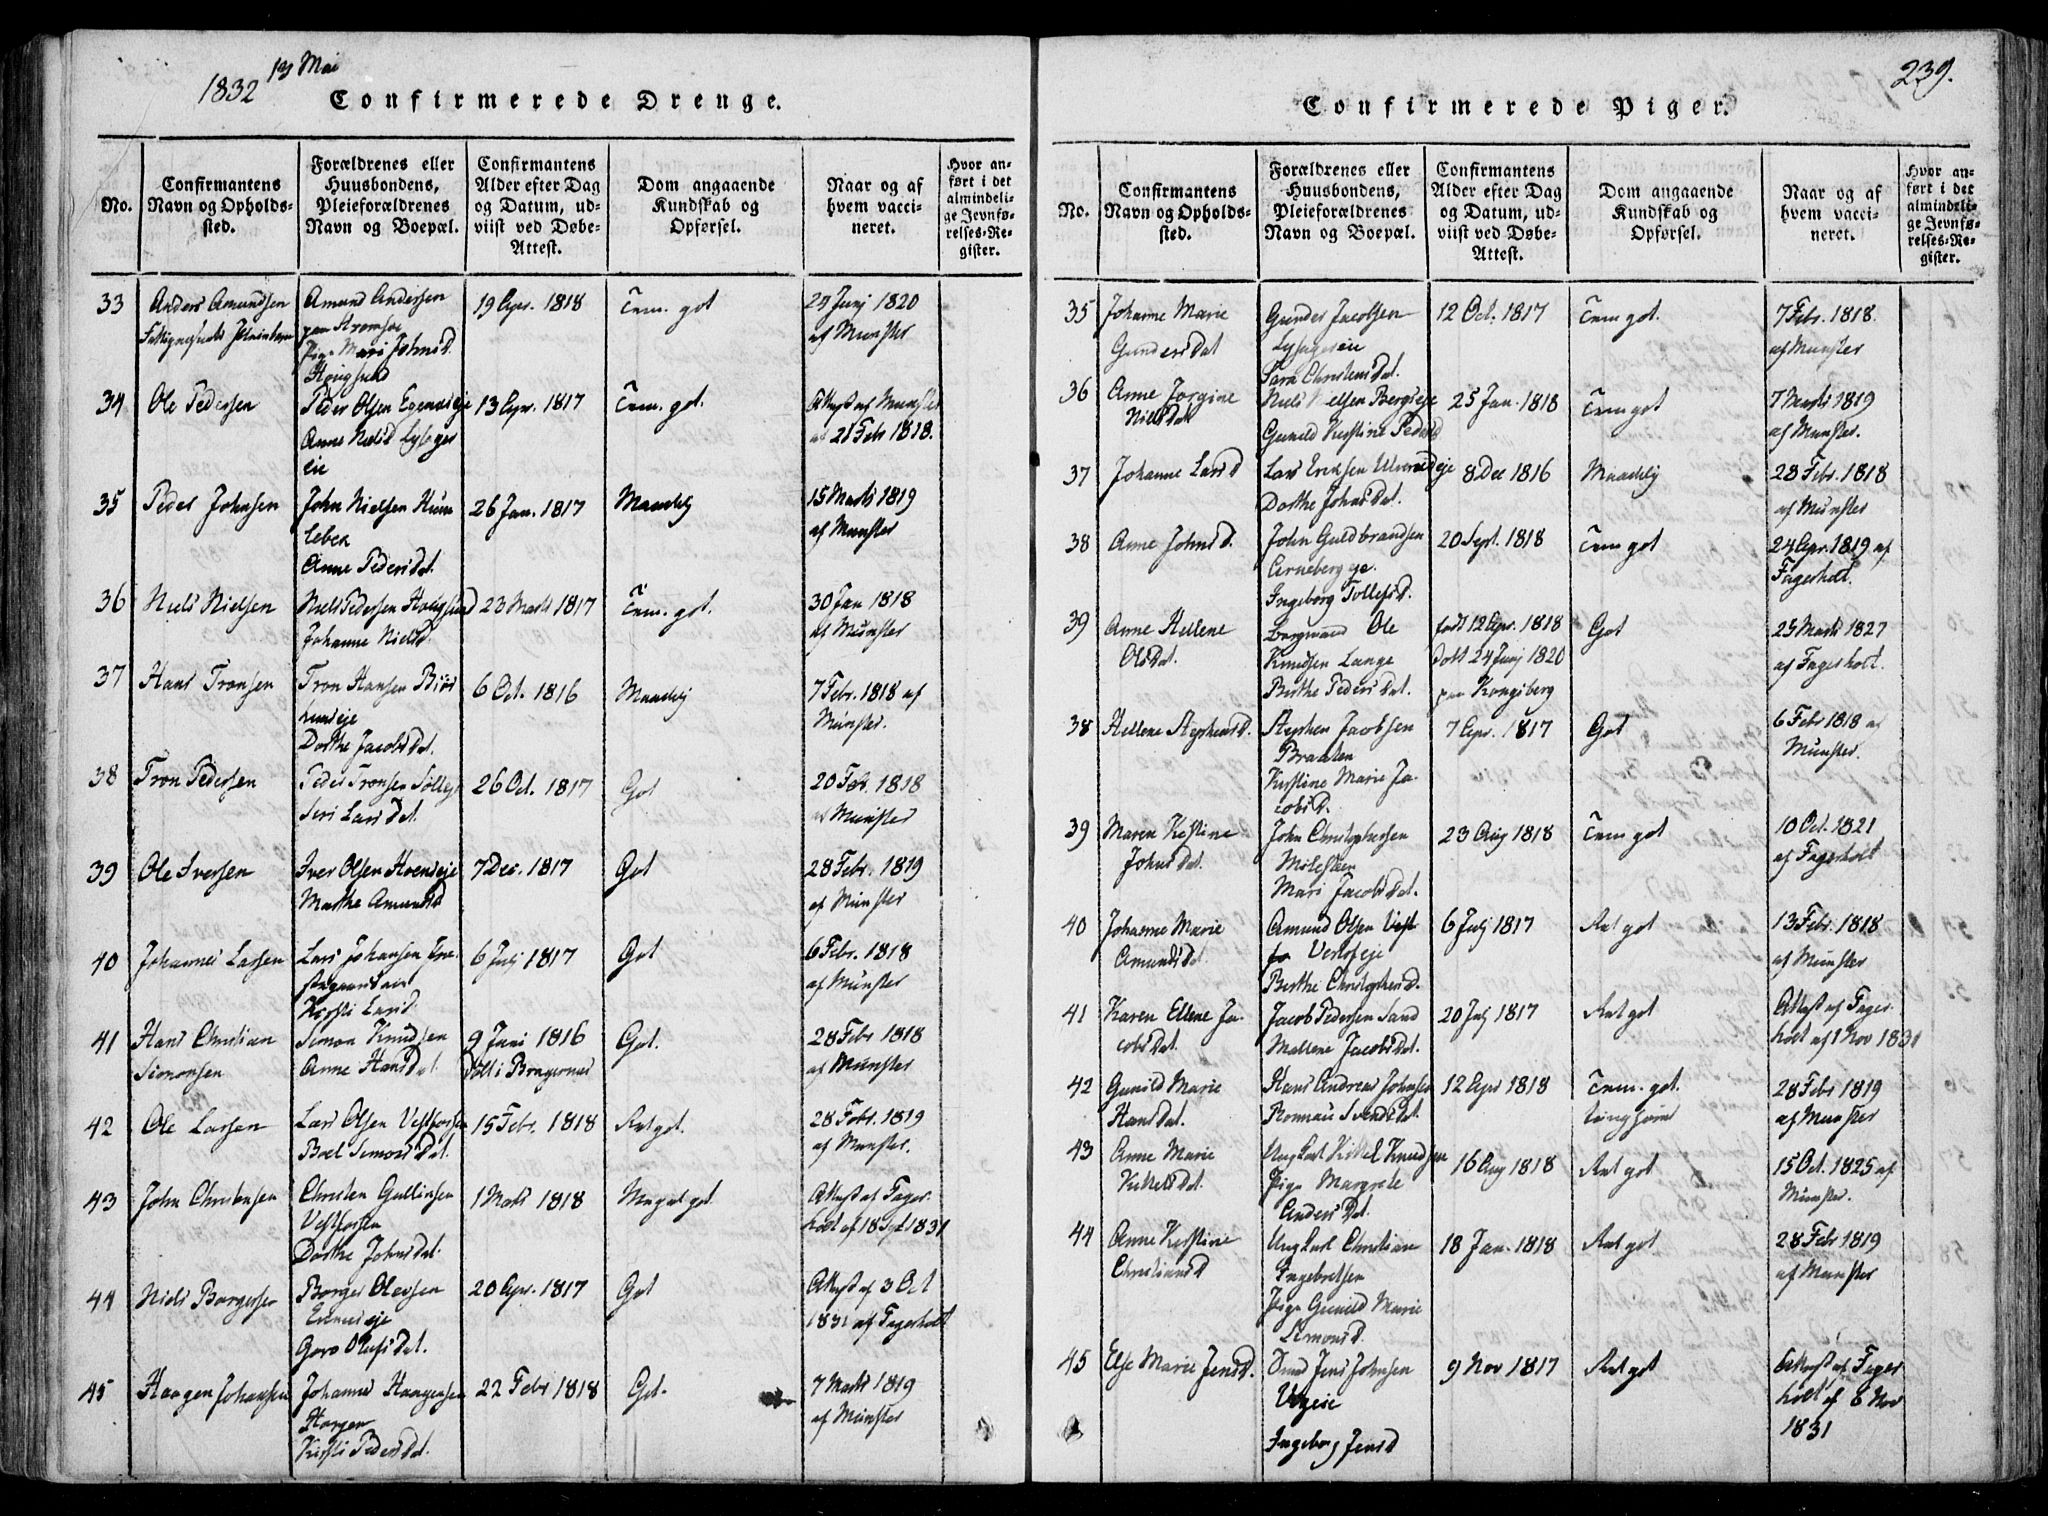 1832 19 Mai
Confirmerede Drenge.
No.
Confirmantens
Navn og Opholds-
sted.
Forældrenes eller
Huusbondens,
Pleieforældrenes
Navn og Boepæl.
Confirmantens
Alder efter Dag
og Datum, ud-
viist ved Døbe-
Attest.
Dom angaaende
Kundskab og
Opførsel.
Naar og af
hvem vacci-
neret.
Hvor an-
ført i det
almindeli-
ge Jevnfø-
relses-Re-
gister.
33 Anders Amundsen Amund Andersen 19 Apr. 1818 Tem. got 29 Junj 1820
paa Stromsøe af Munster
Pige Mari Johnsd.
Hougsund
34 Ole Pedersen Peder Olsen Egerseje 13 Apr. 1817 Tem. got. Attest af Munster
Anne Nielsd Lysger 21 Febr 1818.
eie
35 Peder Johnsen John Nielsen Hum 26 Jan. 1817 Maadelig 15 Marts 1819
lebek af Munster
Anne Pedersdat.
36 Niels Nielsen Niels Pedersen Hougsund 23 Marts 1817 Tem. got. 30 Jan 1818
Johanne Nielsd. af Munster
37 Hans Tronsen Tron Hansen Biør 6 Oct. 1816 Maadelig 7 Febr. 1818 af
lundeje Munster.
Dorthe Jacobsdat.
38 Tron Pedersen Peder Tronsen 26 Oct. 1817 Got 20 Febr. 1818
Siri Larsdat. af Munster
39 Ole Iversen Iver Olsen Hoenseje 7 Dec. 1817 Got 28 Febr. 1819
Marthe Amundsd af Munster
40 Johannes Larsen Lars Johansen 6 Julj 1817 Got 6 Febr. 1818
Kirsti Larsd. af Munster
41 Hans Christian Simon Knudsen 9 Juni 1816 Got. 28 Febr 1818
Simonsen Anne Hansdat døbt i Bragernes af Munster
42 Ole Larsen Lars Olsen Vestfossen 15 Febr. 1818 Ret got. 28 Febr. 1819
Boel Simonsdat. af Munster.
43 John Christensen Christen Gullicsen 1 Marts 1818 Meget got. Attest af Fager-
Vestfossen holt af 18 Sept 1831
Dorthe Johnsdat.
44 Niels Borgersen Borger Olevsen 20 Apr. 1817 Got Attest af 3 Oct
1831 af Fagerholt
Goro Olufsdat.
45 Haagen Johansen Johannes Haagensen 22 Febr 1818 Got. 7 Marts 1819
Haagen af Munster
Kirsti Pedersdat.
239.
Confirmerede Piger.
No.
Confirmantens
Navn og Opholds-
sted.
Forældrenes eller
Huusbondens,
Pleieforældrenes
Navn og Boepæl.
Confirmantens
Alder efter Dag
og Datum, ud-
viist ved Døbe-
Attest.
Dom angaaende
Kundskab og
Opførsel.
Naar og af
hvem vacci-
neret.
Hvor an-
ført i det
almindeli-
ge Jevnfø-
relses-Re-
gister.
35 Johanne Marie Gunder Jacobsen 12 Oct. 1817 Tem got. 7 Febr. 1818.
Gundersdat Lysgereie af Munster
Sara Christensdat.
36 Anne Jorgine Niels Nielsen Bergseje 25 Jan. 1818 Tem got 7 Marts 1819
Nielsdat Gunild Kirstine Pedersd af Munster.
37 Johanne Larsd Lars Eriksen 8 Dec 1816 Maadelig 28 Febr. 1818
Dorthe Johnsdat. af Munster
38 Anne Johnsd. John Guldbrandsen 20 Sept. 1818 Tem got 24 Apr. 1819 af
Ingeborg Tollefsd. Fagerholt.
39 Anne Hellene Bergmand Ole født 12 Apr. 1818 Got 25 Marts 1827
Olsdat. Knudsen Lange døbt 24 Junj 1820 af Fagerholt.
Berthe Pedersdat. paa Kongsberg
38 Hellene Stephensd. Stephen Jacobsen 7 Apr. 1817 Got 6 Febr 1818 af
Braaten Munster.
Kirstine Marie Ja-
cobsd.
39 Maren Kistine John Christophersen 23 Aug 1818 Tem got 10 Oct. 1821
Johnsdat. Milesteen af Fagerholt
Mari Jacobsdat.
40 Johanne Marie Amund Olsen Vest 6 Julj 1817 Ret got 13 Febr. 1818
Amundsdat. Vestfeje af Munster
Berthe Christophersd.
41 Karen Ellene Ja- Jacob Pedersen Sand 20 Julj 1817 Ret got Attest af Fager-
cobsdat. Mallene Jacobsdat. holt af 1 Nov 1831
42 Gunild Marie Hans Andreas Johnsen 12 Apr 1818 Tem. got. 28 Febr 1819
Hansdat. Ronnaug Svendsdat af Munster
43 Anne Marie Ungkarl Kittel Knudsen 16 Aug 1818 Ret got 15 Oct. 1825 af
Kittelsdat. Pige Margrete Munster.
Andersdat.
44 Anne Kirstine Ungkarl Christian 18 Jan. 1818 Ret got 28 Febr 1819
Christiansd Ingebretsen af Munster
Pige Gunild Marie
Simonsd.
45 Else Marie Jensd. Smed Jens Johnsen 9 Nov 1817 Ret got Attest af Fager
holt af 6 Nov
Ingeborg Jensd 1831